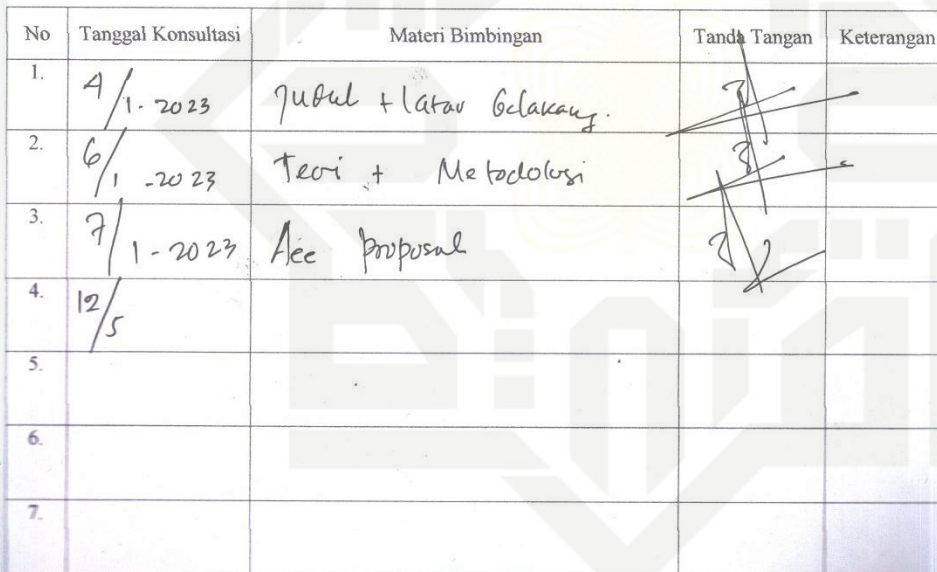 No Tanggal Konsultasi Materi Bimbingan Tanda Tangan Keterangan
1. 4/1-2023 Judul + latar belakang.
2. 6/1-2023 Teori + Metodologi
3. 7/1-2023 Acc proposal
4. 12/5
5.
6.
7.